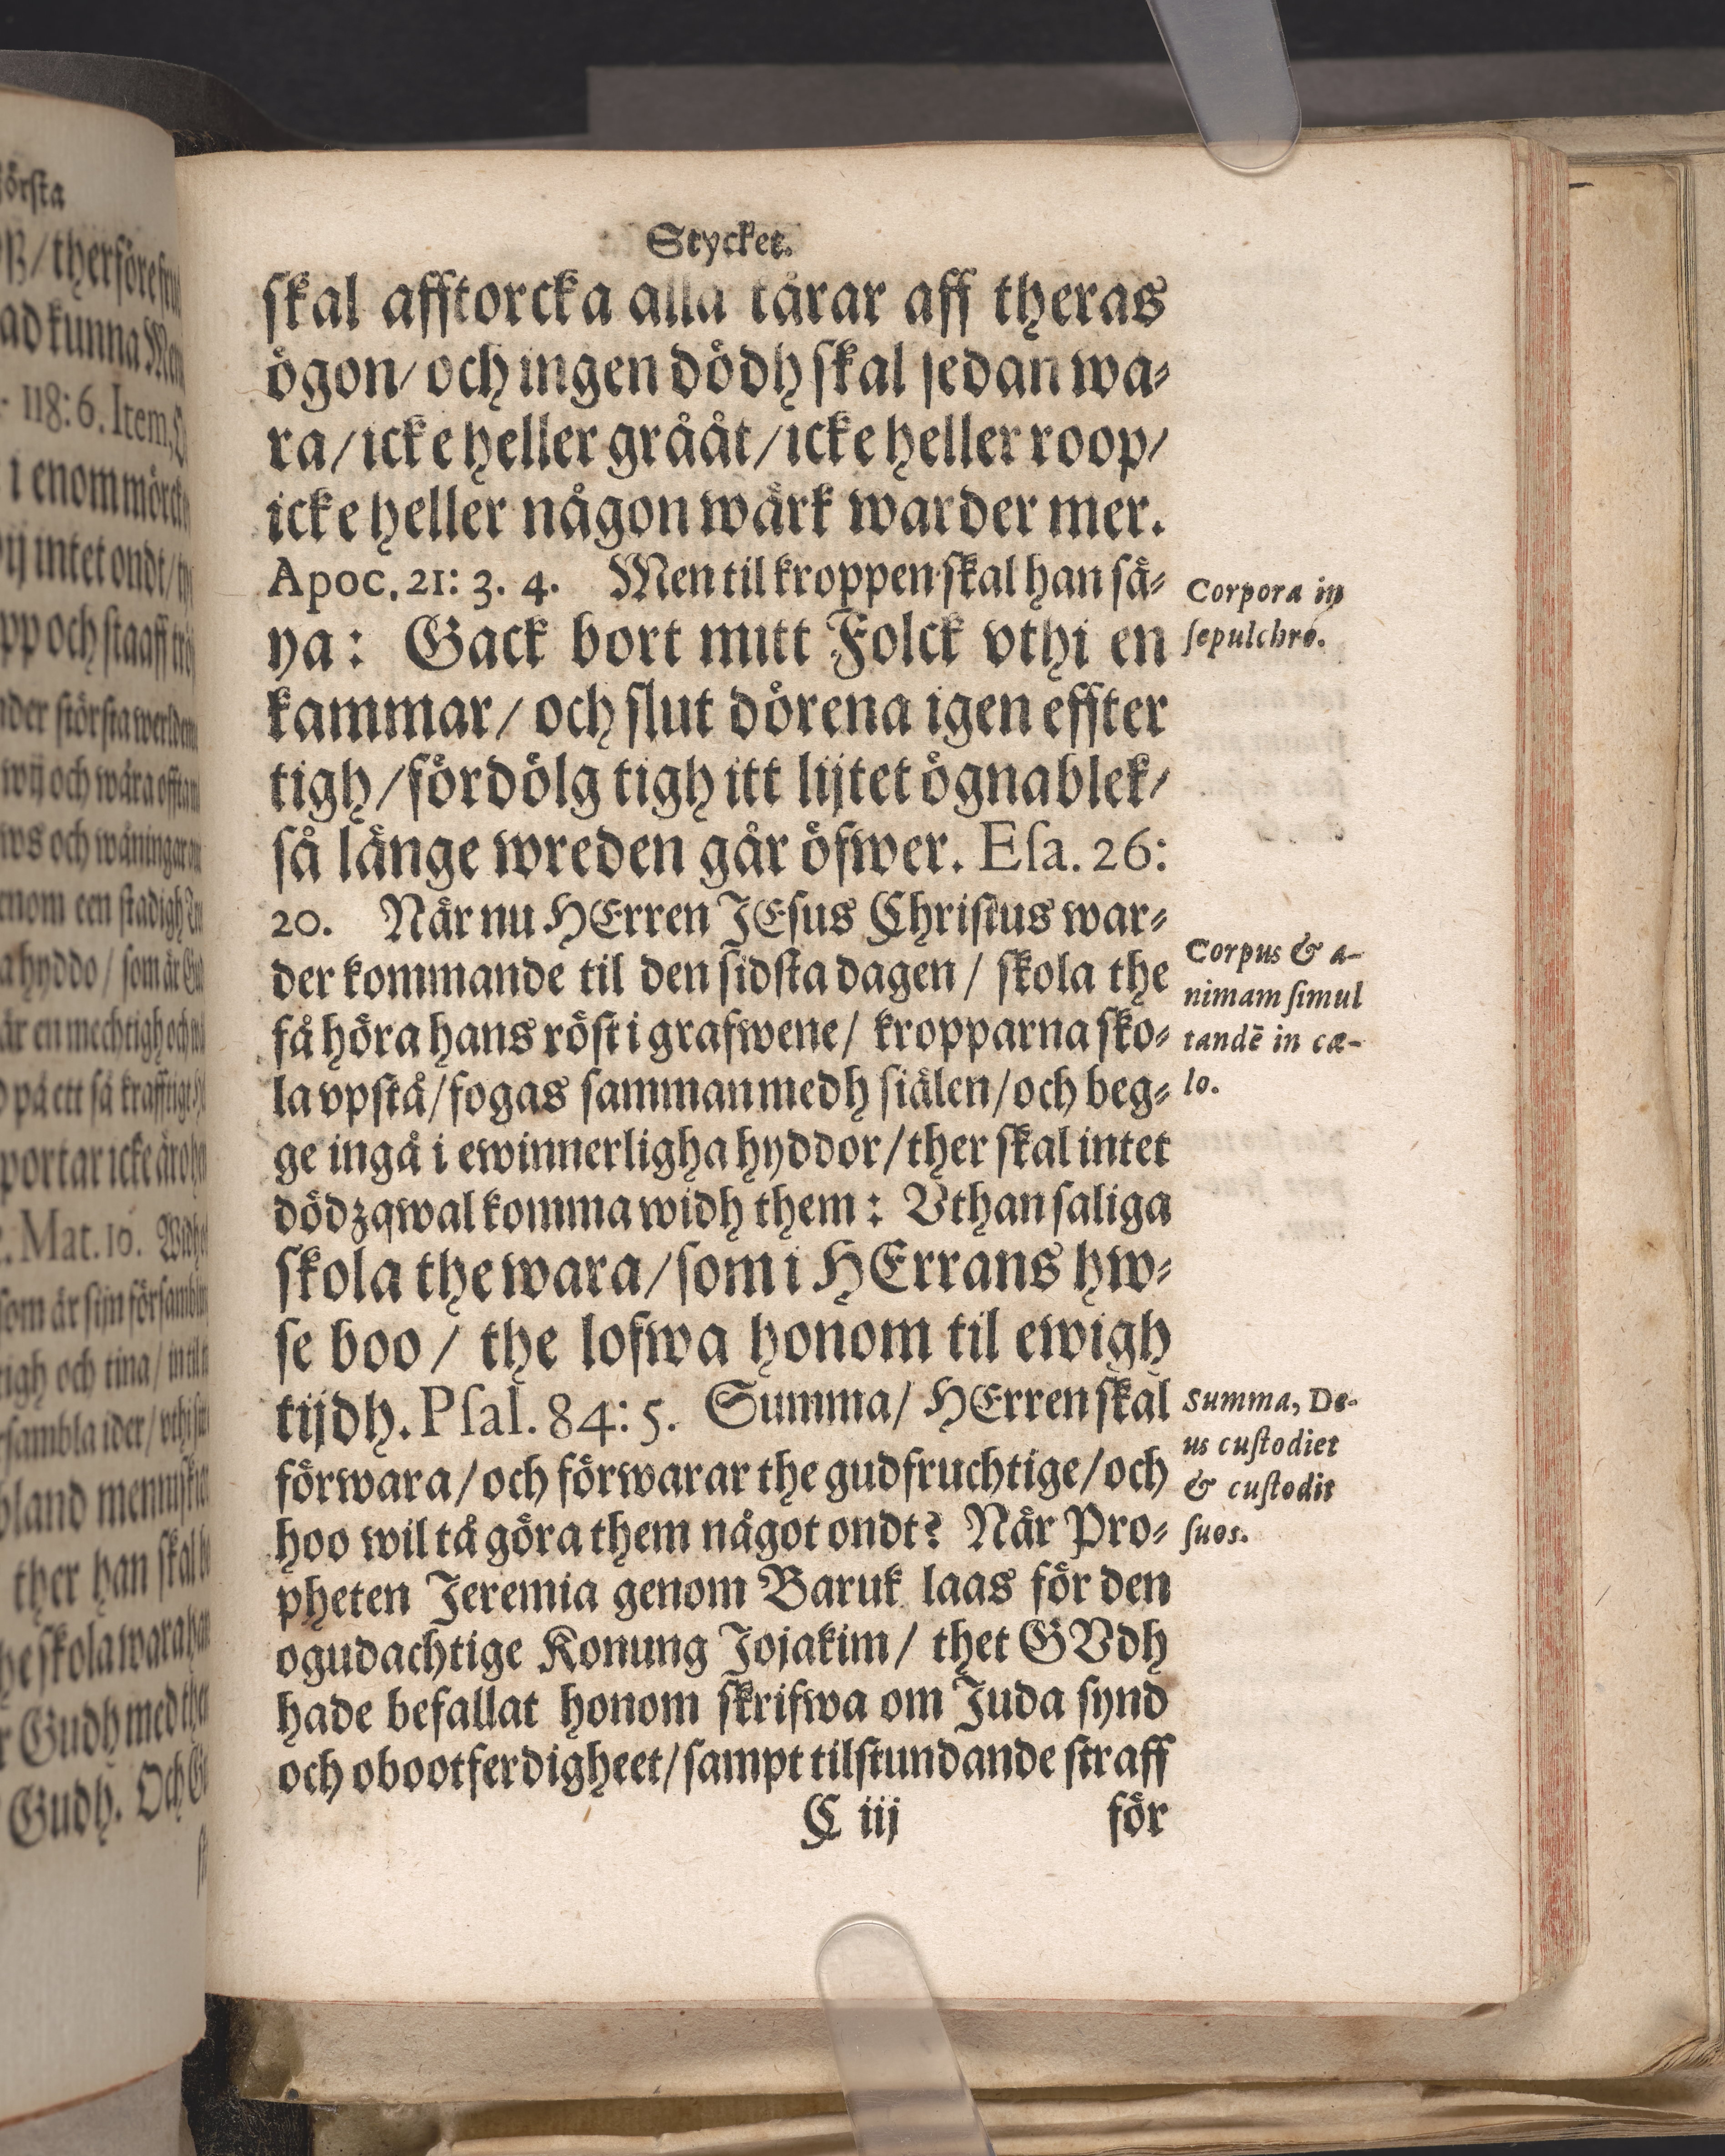 Stycket.
skal afftorcka alla tårar aff theras
ögon/ och ingen dödh skal sedan wa-
ra/ icke heller grååt/ icke heller roop/
icke heller någon wärk warder mer.
Apoc. 21: 3. 4. Men til kroppen skal han sä-
ya: Gack bort mitt Folck vthi en
kammar/ och slut dörena igen effter
tigh/ fördölg tigh itt lijtet ögnablek/
så länge wreden går öfwer. Esa. 26:
20. När nu HErren JEsus Christus war-
der kommande til den sidsta dagen/ skola the
få höra hans röst i grafwene/ kropparna sko-
la vpstå/ fogas samman medh siälen/ och beg-
ge ingå i ewinnerligha hyddor/ ther skal intet
dödzqwal komma widh them: Vthan saliga
skola the wara/ som i HErrans hw-
se boo/ the lofwa honom til ewigh
tijdh. Psal. 84: 5. Summa/ HErren skal
förwara/ och förwarar the gudfruchtige/ och
hoo wil tå göra them något ondt? När Pro-
pheten Jeremia genom Baruk laas för den
ogudachtige Konung Jojakim/ thet GVdh
hade befallat honom skrifwa om Juda synd
och obootferdigheet/ sampt tilstundande straff
C iij för
Corpora in
sepulchro.
Corpus & a-
nimam simul
tandē in cæ-
lo.
Summa, De-
us custodiet
& custodit
suos.
örsta
118: 6. Item,
i enom
ij intet ondt/
pp och staaff
wij och wåra
ws och wåningar
enom een stadigh
hyddo/ som är
är en mechtigh och
på ett så krafftigt
portar icke äro
Mat. 16.
som är sijn
igh och tina/
bland
ther han skal
skola wara
Gudh med
Gudh. Och